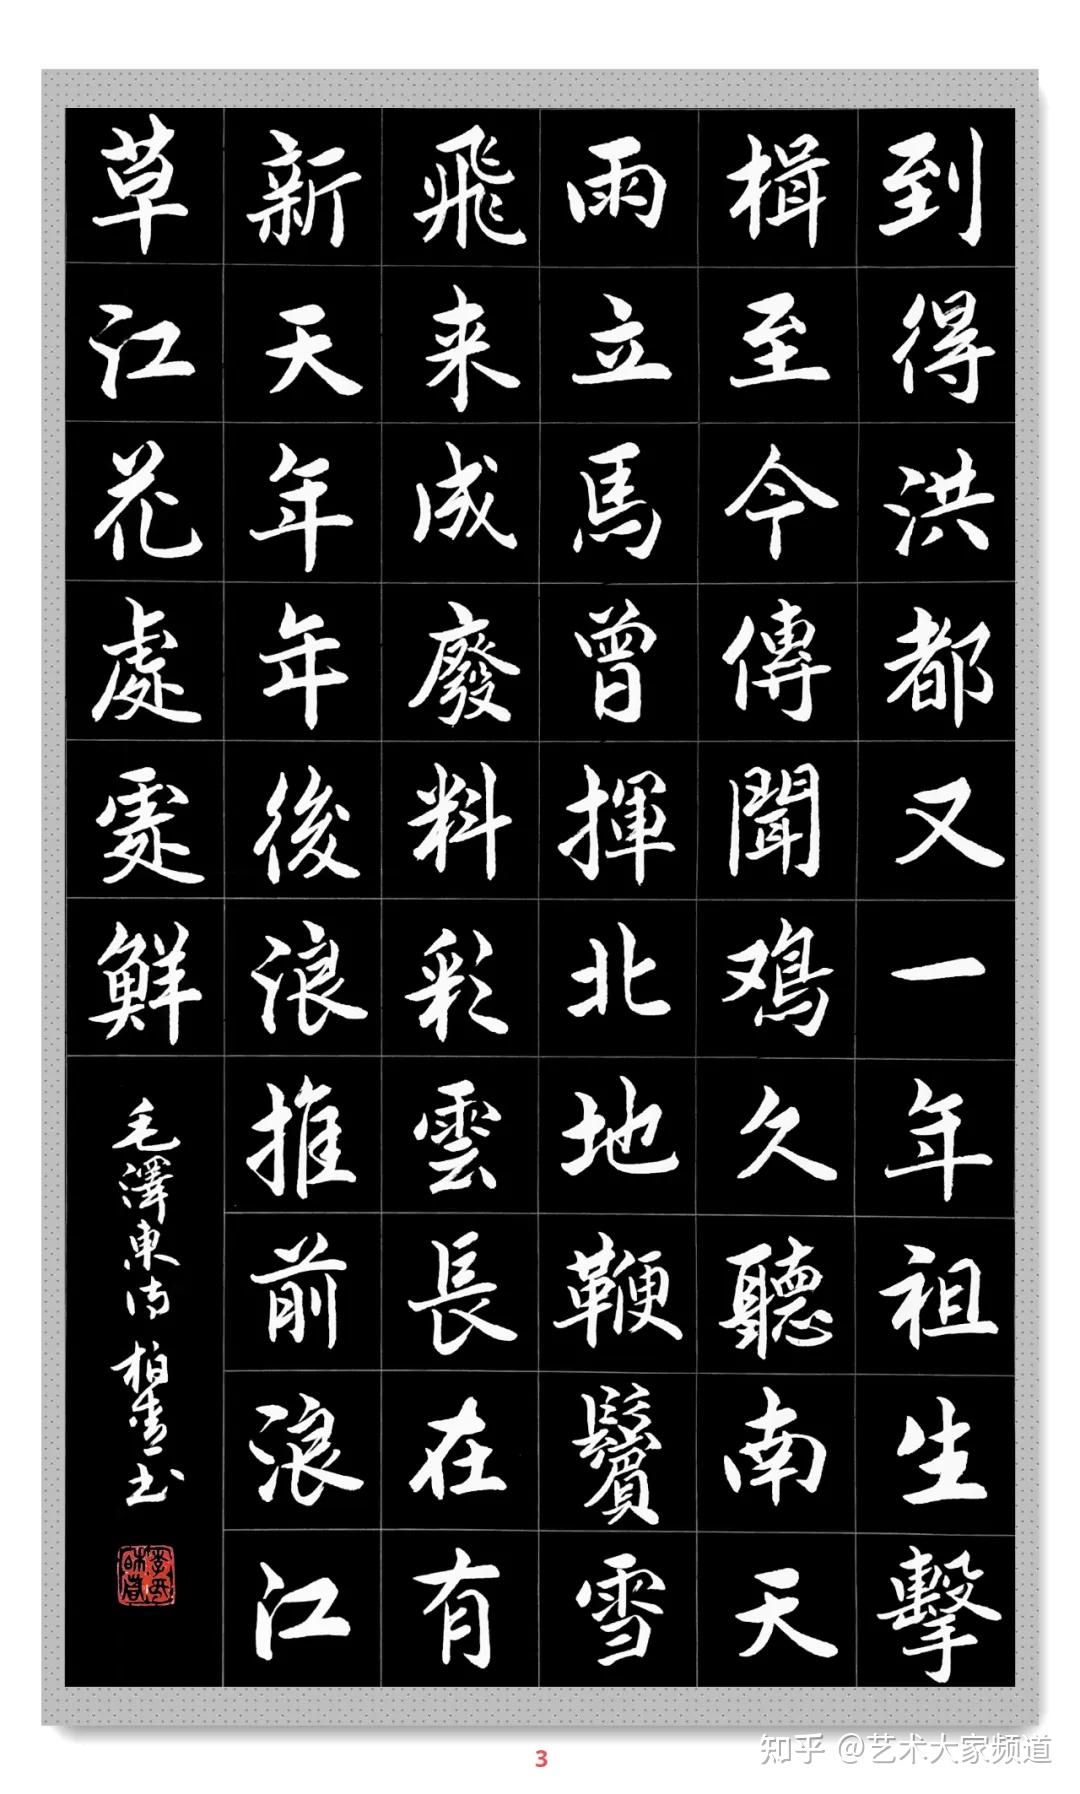 到得洪都又一年祖生擊
楫至今傳聞鳮久聽南天
雨立馬曾揮北地鞭鬢雪
飛来成廢料彩雲長在有
新天年年後浪推前浪江
草江花處處鮮
毛澤東詩 柏
書
3
知乎 @艺术大家频道